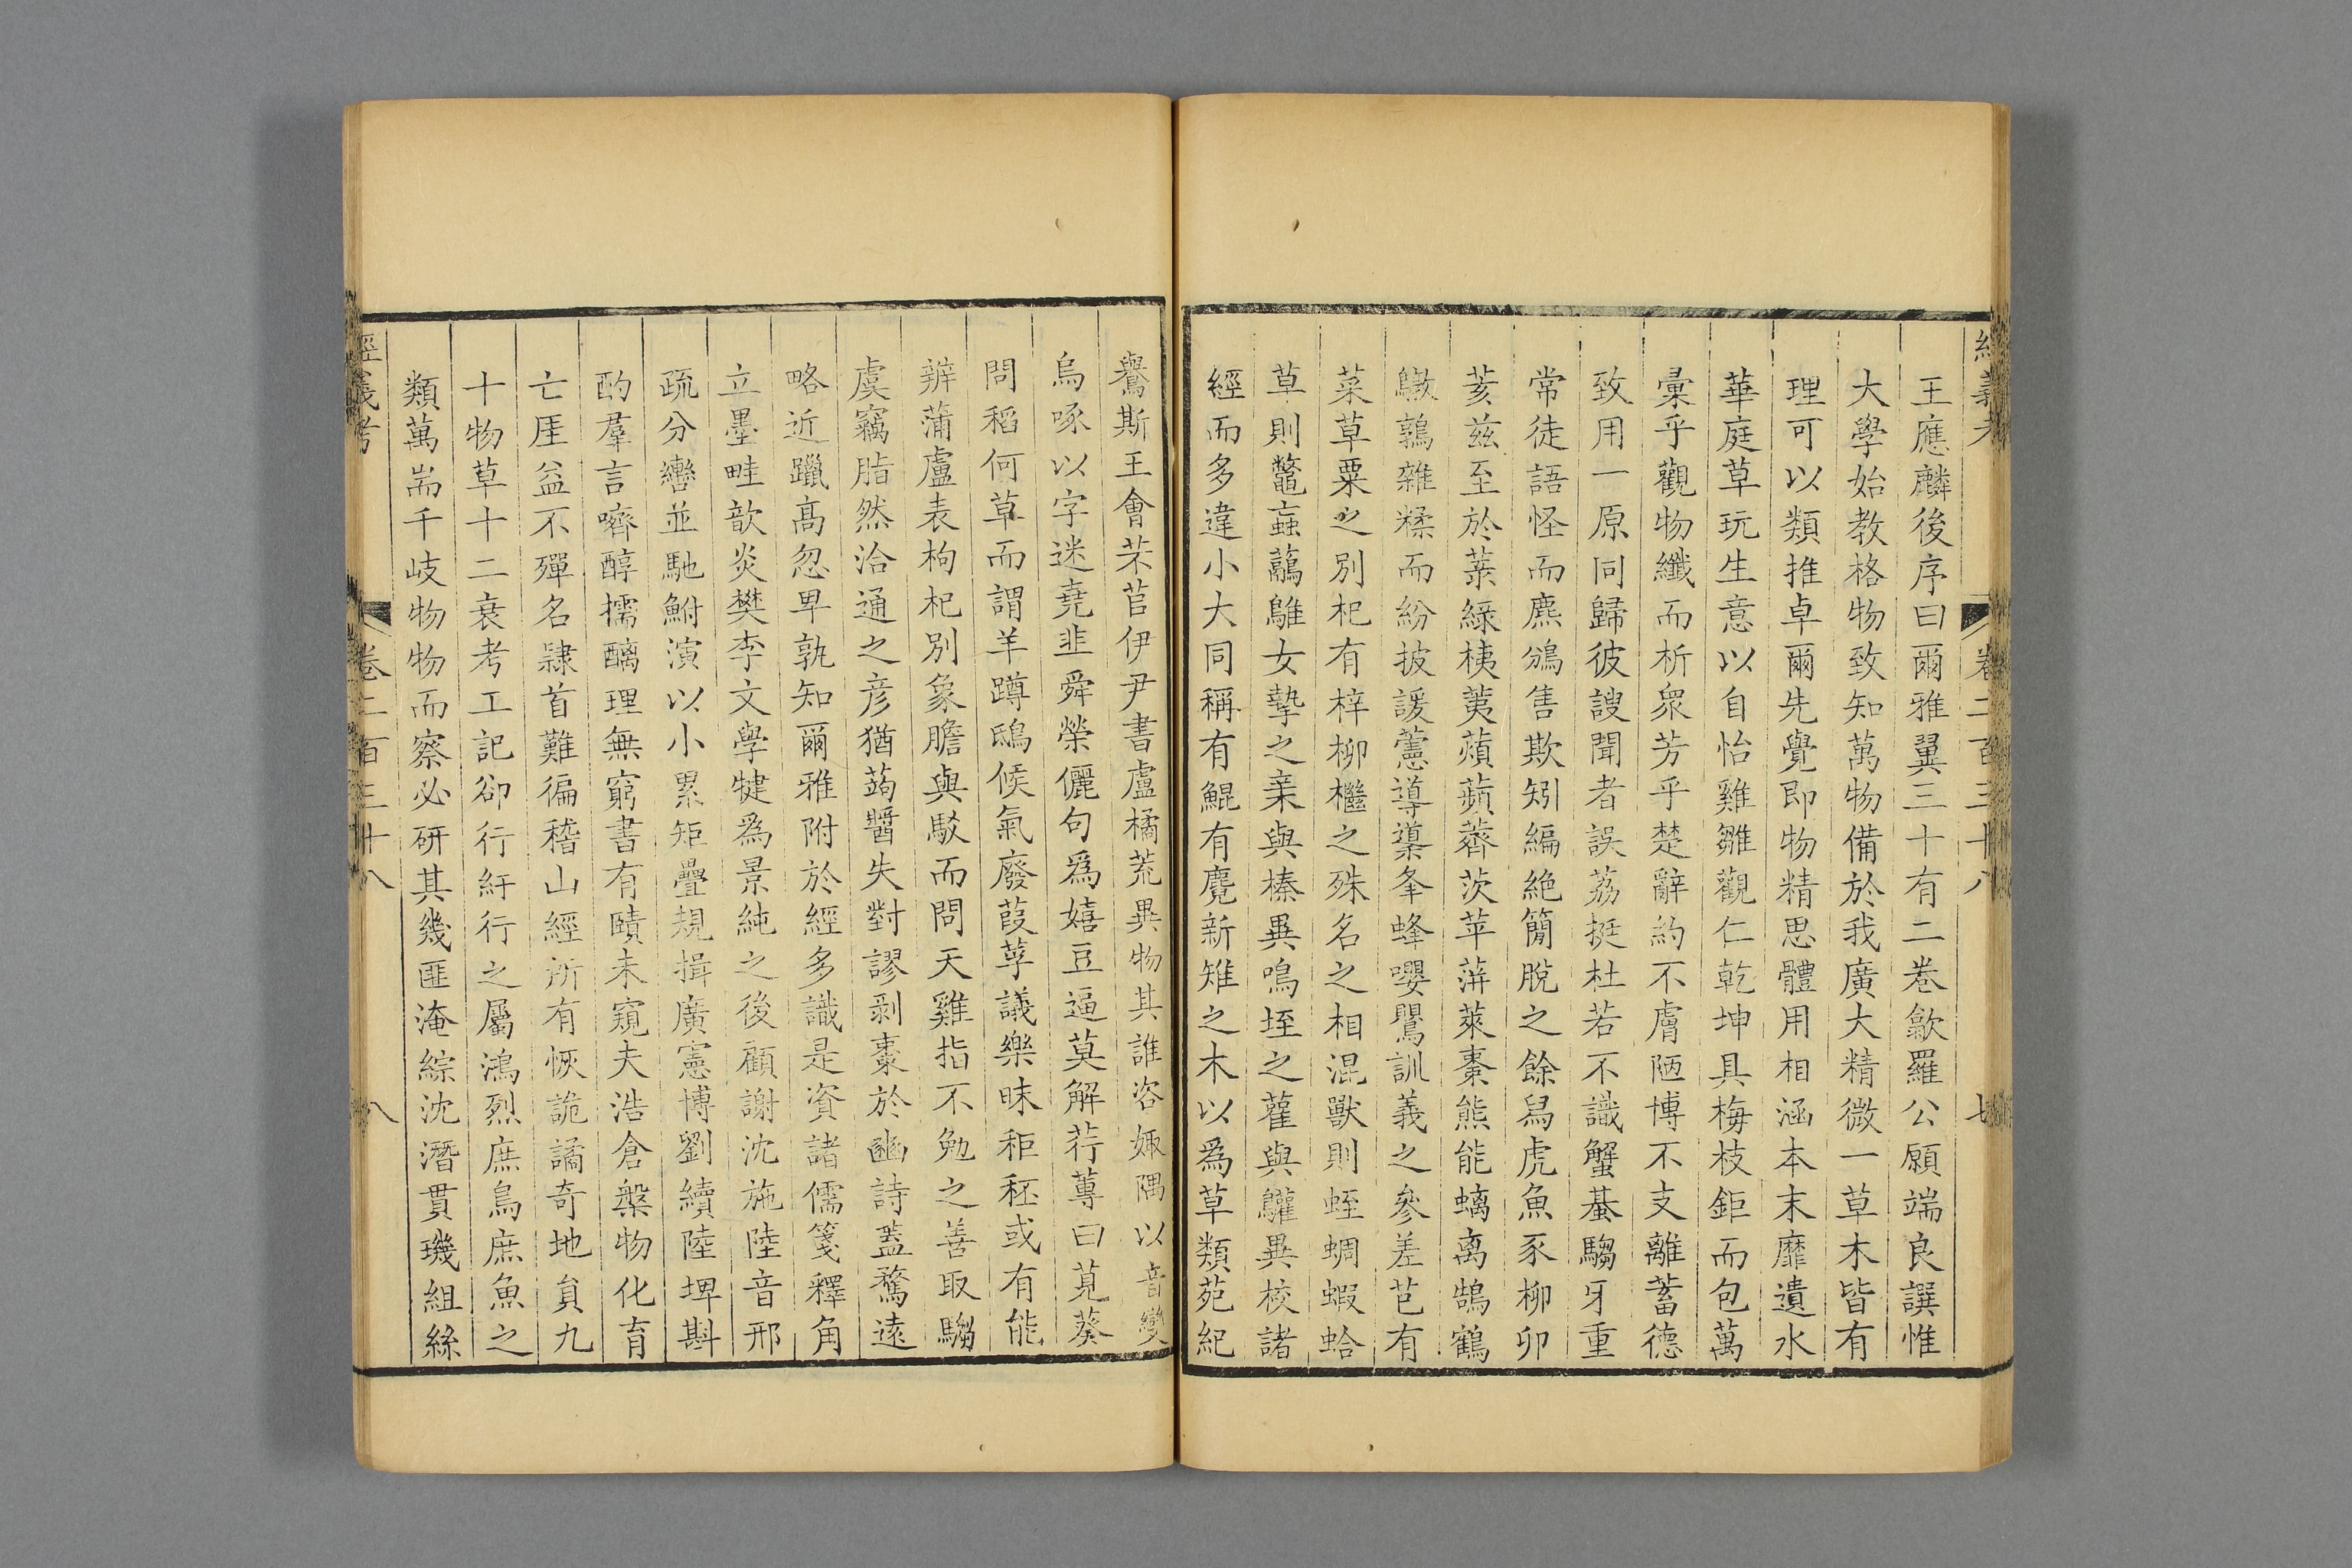 經義考　卷二百三十八　七
王應麟後序曰爾雅翼三十有二卷歙羅公願端良譔惟
大學始教格物致知萬物備於我廣大精微一草木皆有
理可以類推卓爾先覺即物精思體用相涵本末靡遺水
華庭草玩生意以自怡雞雛觀仁乾坤具梅枝鉅而包萬
彙乎觀物纖而析衆芳乎楚辭約不膚陋博不支離蓄德
致用一原同歸彼謏聞者誤荔挺杜若不識蟹蟇騶牙重
常徒語怪而麃鵂售欺矧編絕簡脫之餘舄虎魚豕柳卯
荄兹至於蒤綠桋荑薠蘋薺茨苹蓱萊棗熊能螭离鵠鶴
鷻鶉雜糅而紛披諼藼導䆃夆蜂嚶鸎訓義之參差芑有
菜草粟之別杞有梓柳檵之殊名之相混獸則蛭蜩蝦蛤
草則虌䖵虉鵻女摯之亲與榛異鳴垤之雚與鸛異校諸
經而多違小大同稱有鯤有麑新雉之木以爲草類苑紀
鸒斯王會芣苢伊尹書盧橘荒異物其誰咨娵隅以音變
烏啄以字迷堯韭舜榮儷句爲嬉豆逼莫解荇蓴曰莧葵
問稻何草而謂羊蹲鴟候氣廢葭莩議樂昧秬秠或有能
辨蒲盧表枸杞別象膽與駁而問天雞指不勉之善取騶
虞竊脂然洽通之彥猶蒟醬失對謬剥棗於豳詩蓋騖遠
略近躐高忽卑孰知爾雅附於經多識是資諸儒箋釋角
立墨畦歆炎樊李文學犍爲景純之後顧謝沈施陸音邢
疏分轡並馳鮒演以小累矩疊規揖廣憲博劉續陸埤斟
酌羣言嚌醇擩醨理無窮書有賾未窺夫浩倉槃物化育
亡厓益不殫名隸首難徧稽山經所有恢詭譎奇地貟九
十物草十二衰考工記卻行紆行之屬鴻烈庶鳥庶魚之
類萬耑千岐物物而察必硏其幾匪淹綜沈潛貫璣組絲
經義考　卷二百三十八　八